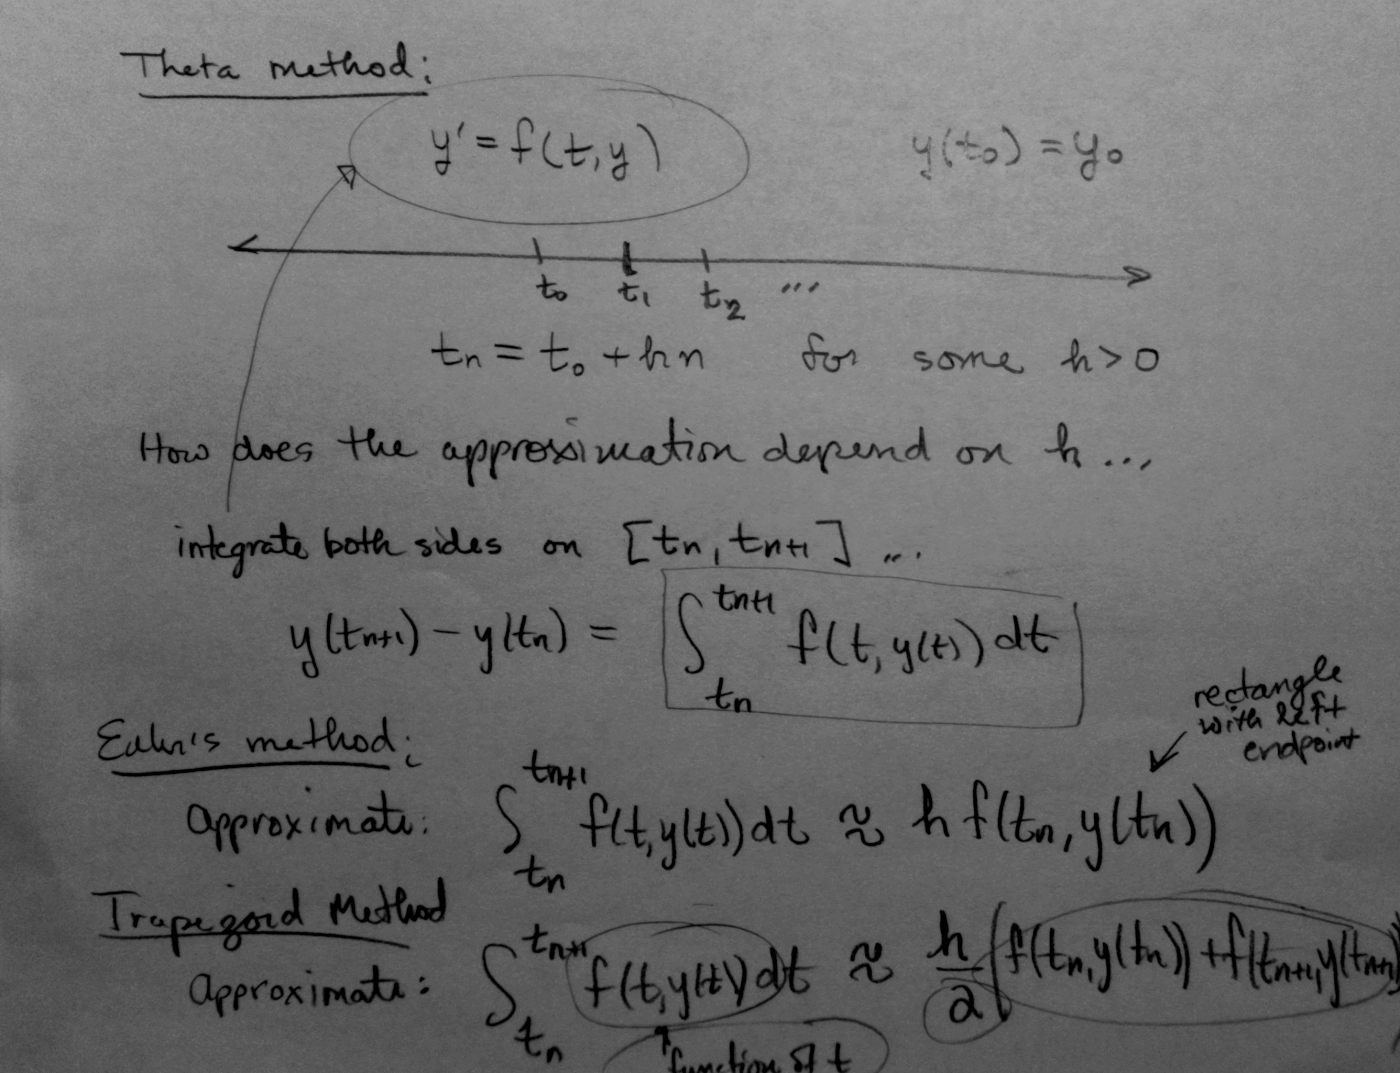 Theta method:
y' = f(t, y) y(t₀) = y₀
t₀ t₁ t₂ ...
tₙ = t₀ + hn for some h > 0
How does the approximation depend on h ...
integrate both sides on [tₙ, tₙ₊₁] ...
y(tₙ₊₁) − y(tₙ) = ∫_{tₙ}^{tₙ₊₁} f(t, y(t)) dt
rectangle
with left
endpoint
Euler's method:
Approximate: ∫_{tₙ}^{tₙ₊₁} f(t, y(t)) dt ≈ h f(tₙ, y(tₙ))
Trapezoid Method
Approximate: ∫_{tₙ}^{tₙ₊₁} f(t, y(t)) dt ≈ h/2 (f(tₙ, y(tₙ)) + f(tₙ₊₁, y(tₙ₊₁)
function of t